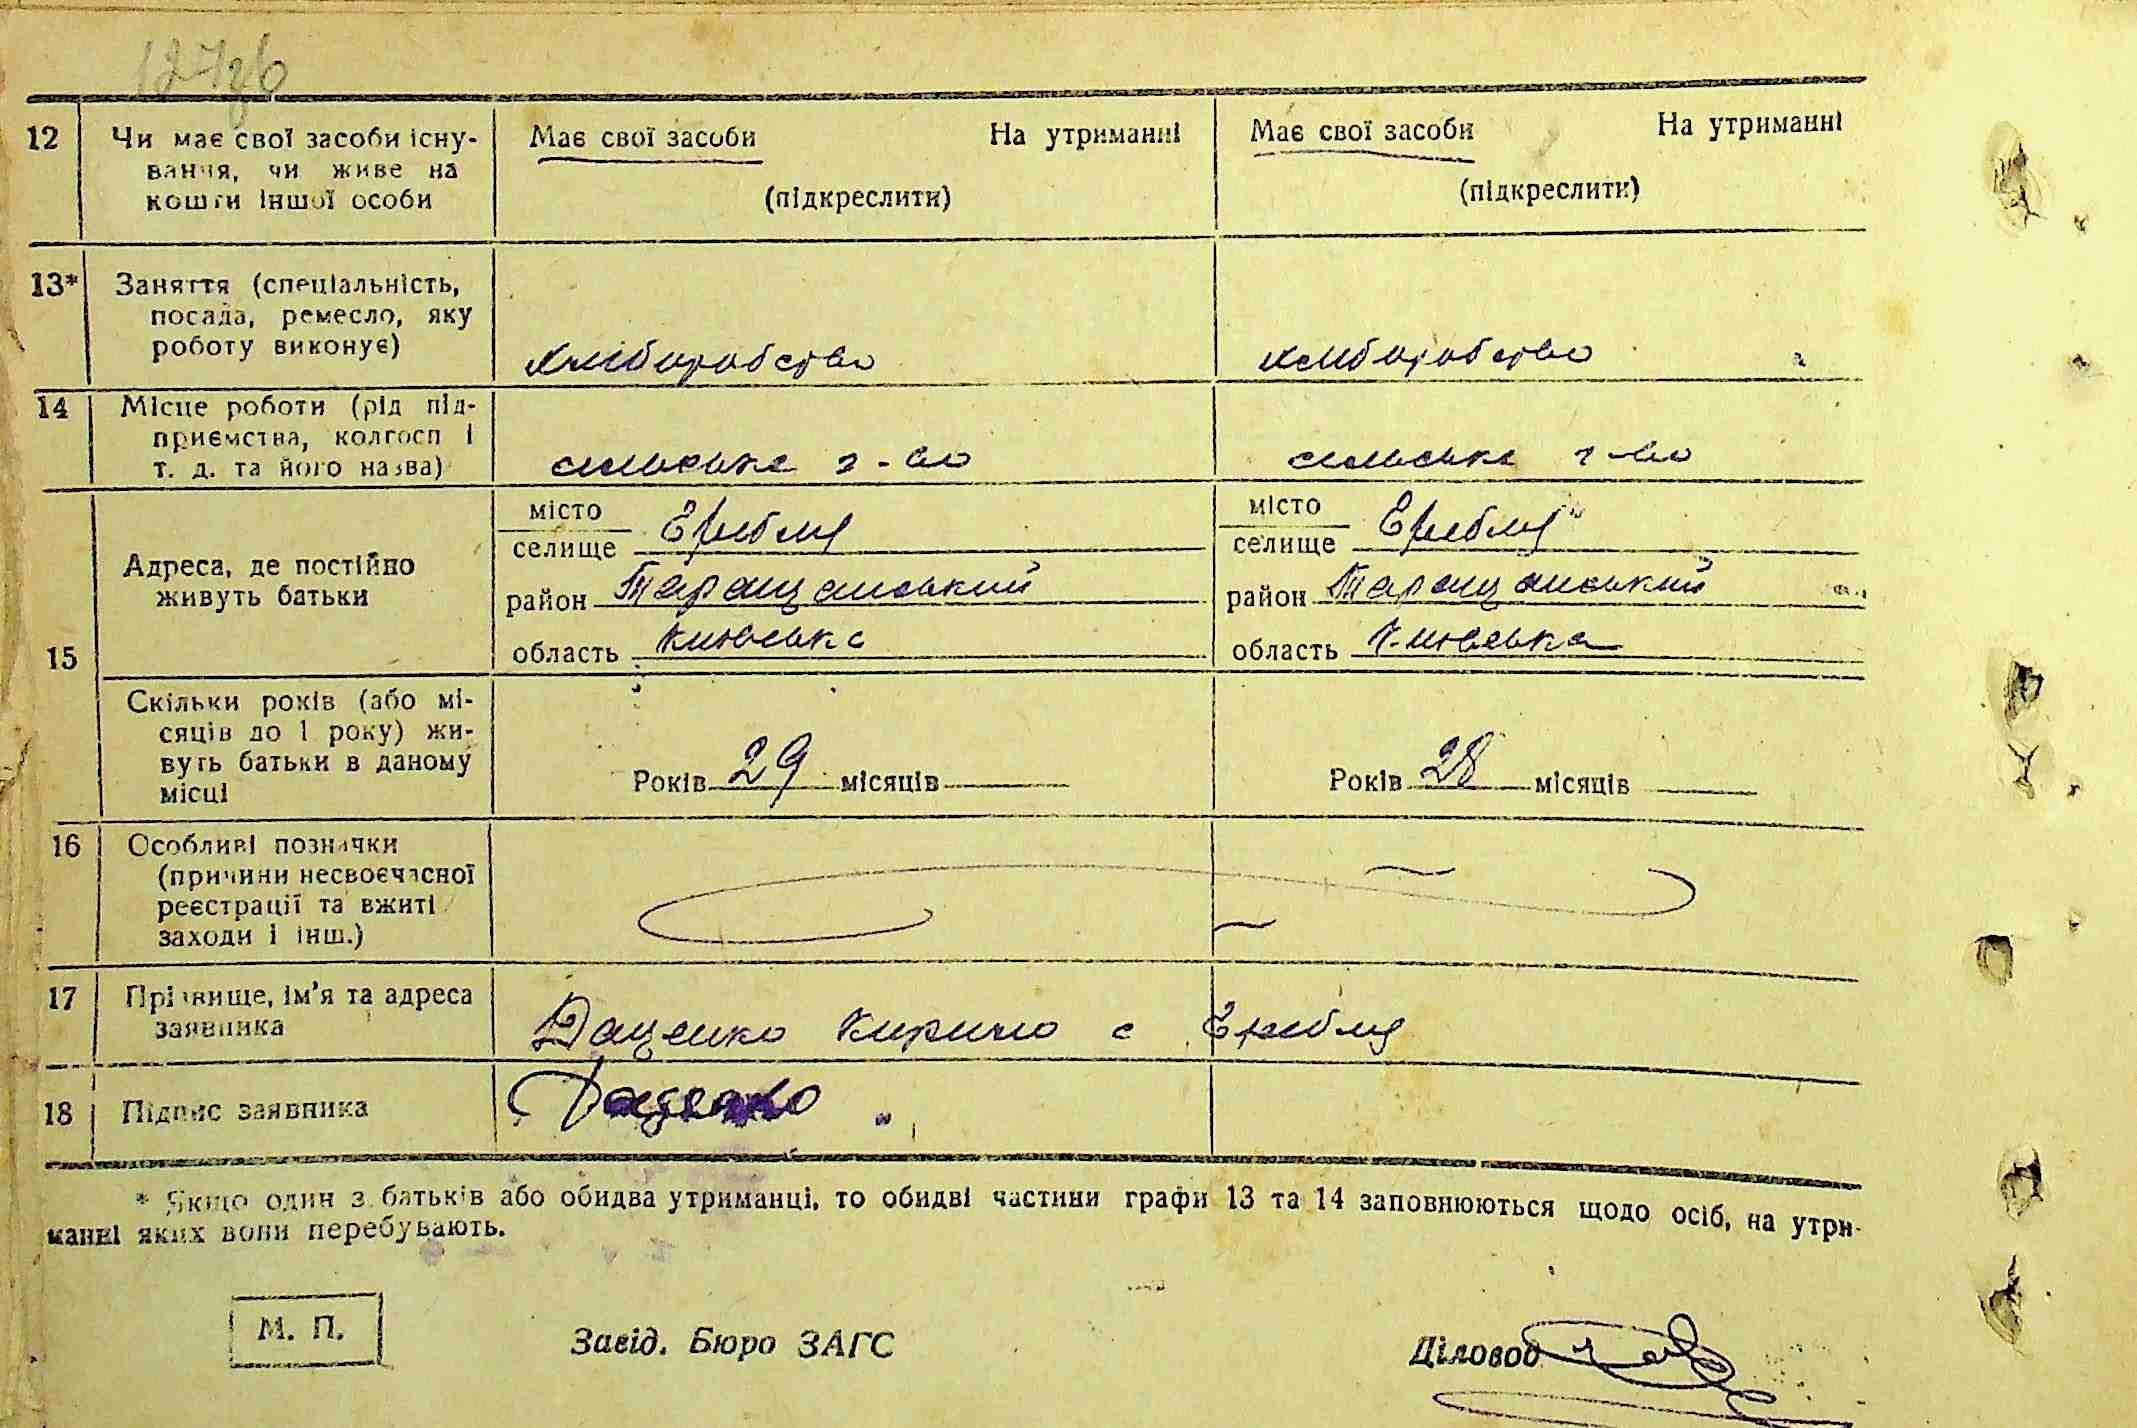 12 Чи має свої засоби існу-
вання, чи живе на
кошти іншої особи
Має свої засоби На утриманні
(підкреслити)
Має свої засоби На утриманні
(підкреслити)
13* Заняття (спеціальність,
посада, ремесло, яку
роботу виконує)
хліборобство
хліборобство
14 Місце роботи (рід під-
приємства, колгосп і
т. д. та його назва)
сільське г-во
сільське г-во
15 Адреса, де постійно
живуть батьки
місто
селище
район Таращанський
область Київська
місто
селище
район Таращанський
область Київська
Скільки років (або мі-
сяців до 1 року) жи-
вуть батьки в даному
місці
Років 29 місяців
Років 28 місяців
16 Особливі позначки
(причини несвоєчасної
реєстрації та вжиті
заходи і інш.)
17 Прізвище, ім'я та адреса
заявника
Даценко Кирило с
18 Підпис заявника
Даценко
* Якщо один з батьків або обидва утриманці, то обидві частини графи 13 та 14 заповнюються щодо осіб, на утри-
манні яких вони перебувають.
М. П.
Завід. Бюро ЗАГС
Діловод